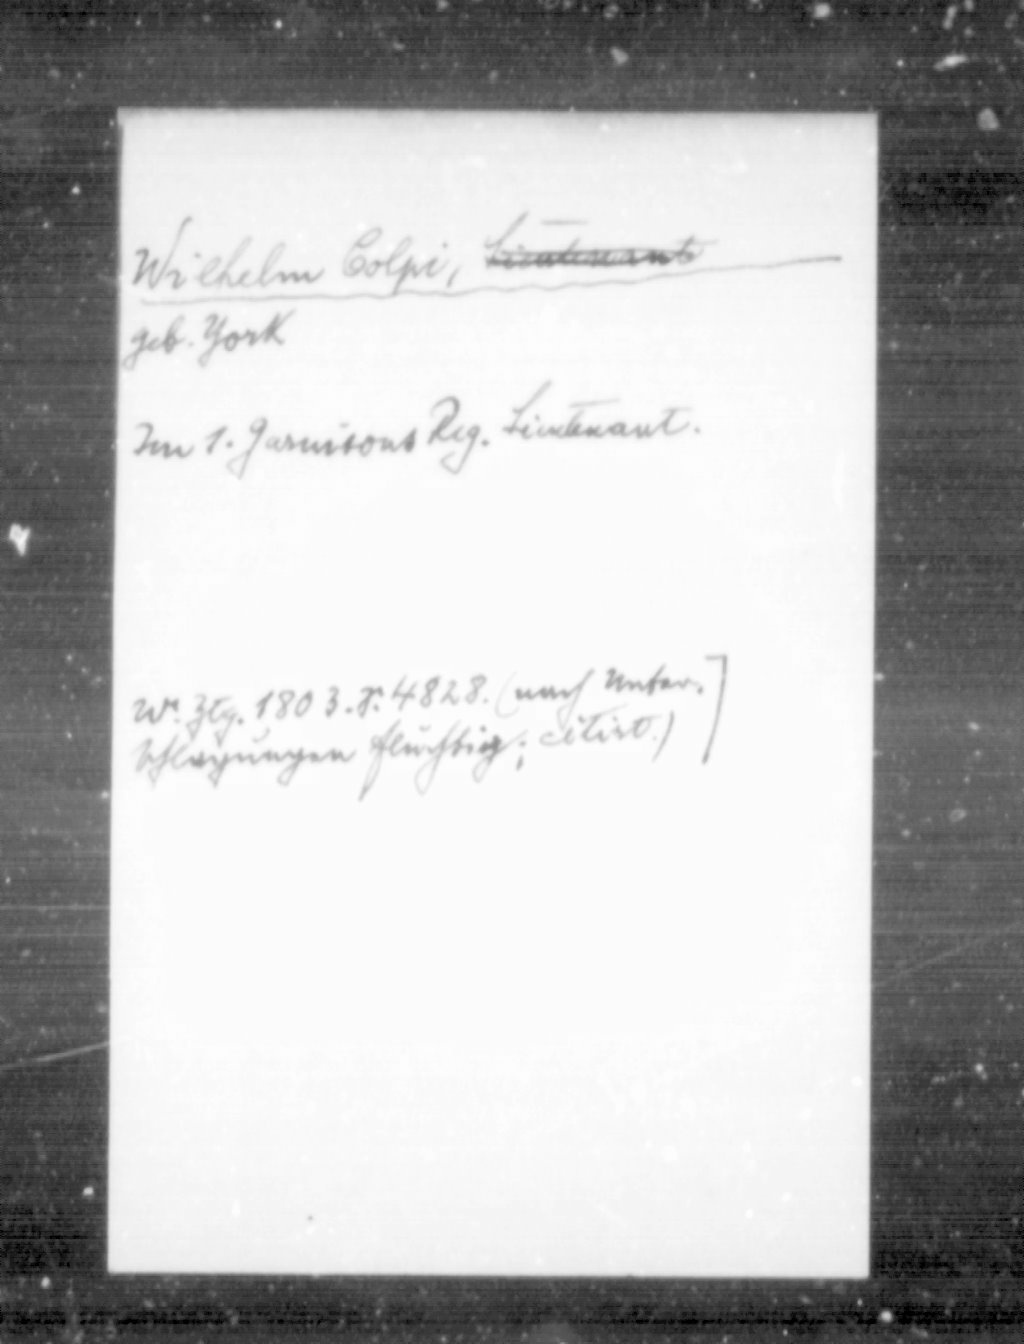 Wilhelm Colpi, Lieutenant
geb. York
Im 1. Garnisons Reg. Lieutenant.
Wr. Ztg. 1803. S. 4828. (nach Unter-
schlagungen flüchtig; citirt.)]